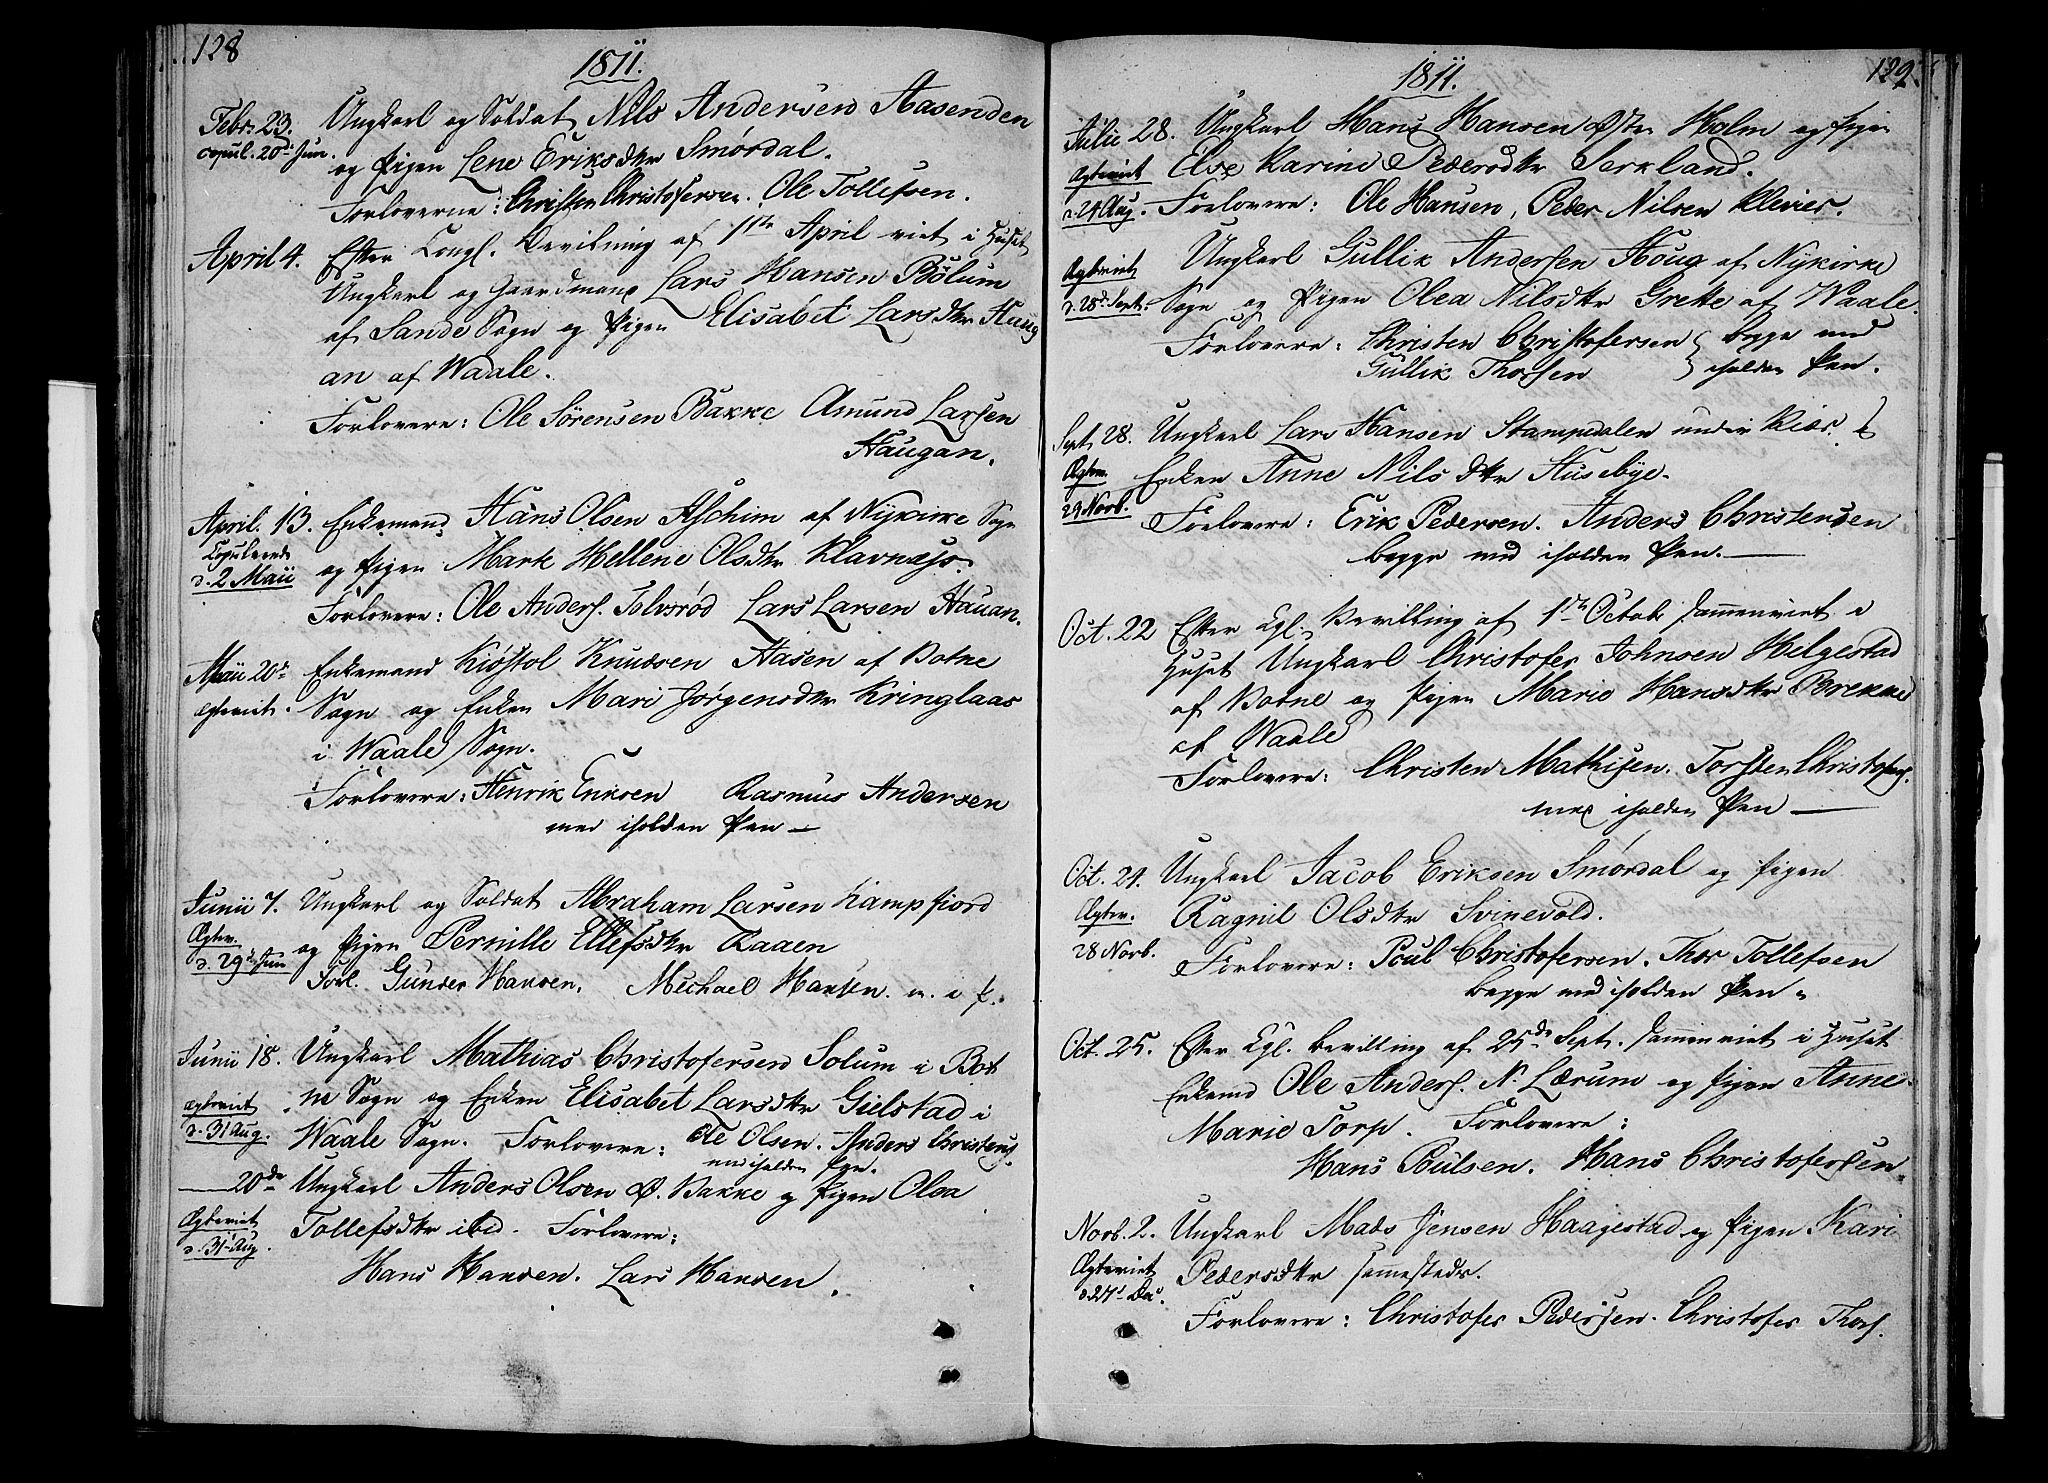 128
1811.
Febr. 23. Ungkarl og Soldat Nils Andersen Aasenden
copul. 20de Jun. og Pigen Lene Eriksdtr Smørdal.
Forloverne: Christen Christofersen. Ole Tollefsen.
April 4. Efter Kongl. Bevilning af 1ste April viet i Huset
Ungkarl og Gaardmand Lars Hansen Bølum
af Sande Sogn og Pigen Elisabet Larsdtr Haug
an af Waale.
Forlovere: Ole Sørensen Bakke Amund Larsen
Haugan.
April. 13. Enkemand Hans Olsen Aschim af Nykirke Sogn
Copulerede og Pigen Mart Hellene Olsdtr Klavnæss.
d. 2 Maii
Forlovere: Ole Anders. Tolvsrød Lars Larsen Hauan.
Maii 20de Enkemand Kiøstol Knudsen Aasen af Botne
ægteviet. Sogn og Enken Mari Jørgensdtr Kringlaas
i Waale Sogn.
Forlovere: Henrik Enksen Rasmus Andersen
med iholden Pen —
Junii 7. Ungkarl og Soldat Abraham Larsen Kampfiord
Ægtev. og Pigen Pernille Ellefsdtr Raaen
d. 29de Jun
Forl. Gunder Hansen. Michael Hansen. m. i P.
Junii 18. Ungkarl Mathias Christofersen Solum i Bot
ægteviet ne Sogn og Enken Elisabet Larsdtr Gielstad i
d. 31 Aug. Waale Sogn. Forlovere: Ole Olsen. Anders Christens.
med iholden Pen.
— 20de Ungkarl Anders Olsen Ø. Bakke og Pigen Olea
Ægteviet Tollefsdtr ibid. Forlovere:
d. 31 Aug.
Hans Hansen. Lars Hansen.
129
1811.
Julii 28. Ungkarl Hans Hansen Østre Holm og Pigen
Ægteviet Else Karine Pedersdtr Serkland.
d. 24 Aug. Forlovere: Ole Hansen, Peder Nilsen Klever.
Ægteviet Ungkarl Gullik Andersen Houg af Nykirke
d. 28de Sept. Sogn og Pigen Olea Nilsdtr Greke af Waale.
Forlovere: Christen Christofersen } begge med
Gullik Thorsen } iholden Pen.
Sept. 28. Ungkarl Lars Hansen Stampedalen under Kiær. &
Ægtev. Enken Anne Nilsdtr Husebye.
29 Novb. Forlovere: Erik Pedersen. Anders Christensen
begge med iholden Pen. —
Oct. 22 Efter Kgl. Bevilling af 1ste Octobr sammenviet i
Huset Ungkarl Christofer Johnsen Helgestad
af Botne og Pigen Marie Hansdtr Brekke
af Waale
Forlovere: Christen Mathisen. Torsten Christofers.
med iholden Pen —
Oct. 24. Ungkarl Jacob Eriksen Smørdal og Pigen
Ægtev. Ragnil Olsdtr Svinevold.
28 Novb. Forlovere: Poul Christofersen. Thor Tollefsen
begge med iholden Pen.
Oct. 25. Efter Kgl. Bevilling af 25de Sept. sammenviet i Huset
Enkemd Ole Anders. N. Lærum og Pigen Anne
Marie Torp. Forlovere:
Hans Poulsen. Hans Christofersen.
Novb. 2. Ungkarl Mads Jensen Haagestad og Pigen Kari
Ægteviet Pedersdtr sammesteds.
d. 27de Dec. Forlovere: Christofer Pedersen. Christofer Thors.